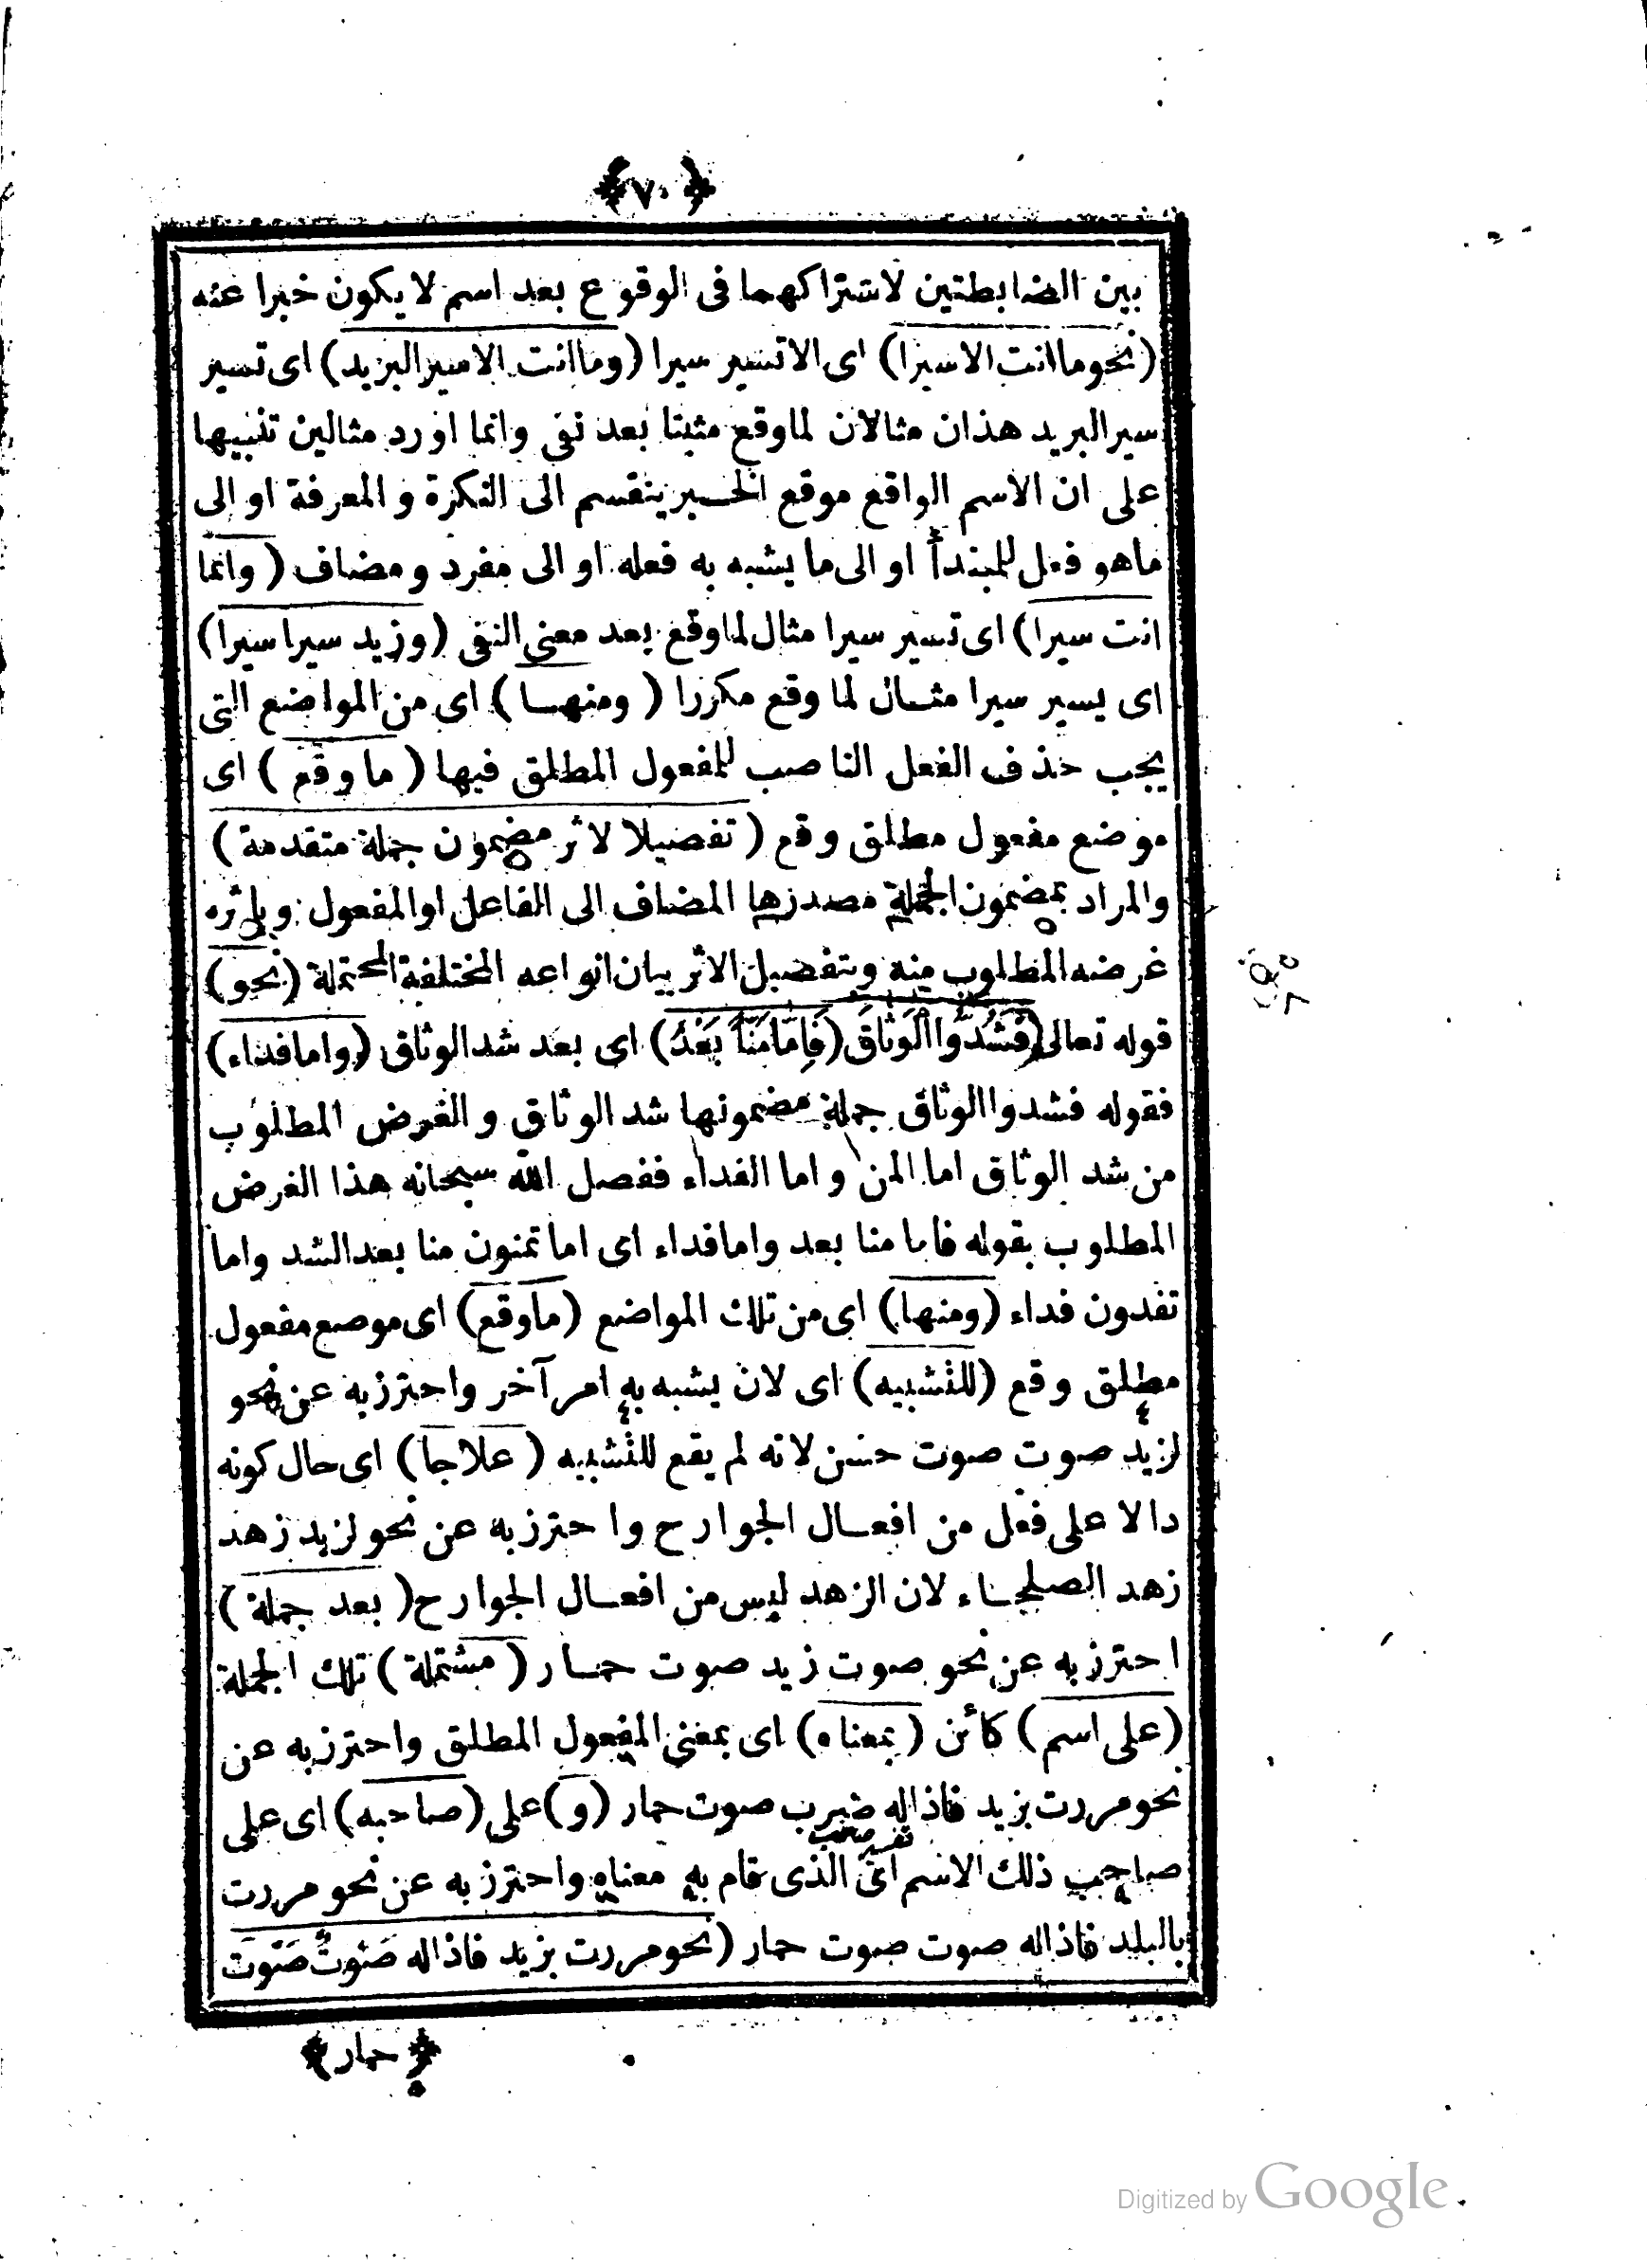 ﴿٧٠﴾
بين الضابطتين لاشتراكهما فى الوقوع بعد اسم لا يكون خبرا عنه
(نحو ما انت الا سيرا) اى الا تسير سيرا (وما انت الا سير البريد) اى تسير
سير البريد هذان مثالان لما وقع مثبتا بعد نفى وانما اورد مثالين تنبيها
على ان الاسم الواقع موقع الخبر ينقسم الى النكرة و المعرفة او الى
ما هو فعل للمبتدأ او الى ما يشبه به فعله او الى مفرد و مضاف (وانما
انت سيرا) اى تسير سيرا مثال لما وقع بعد معنى النفى (وزيد سيرا سيرا)
اى يسير سيرا مثال لما وقع مكررا (ومنها) اى من المواضع التى
يجب حذف الفعل الناصب للمفعول المطلق فيها (ما وقع) اى
موضع مفعول مطلق وقع (تفصيلا لاثر مضمون جملة متقدمة)
والمراد بمضمون الجملة مصدرها المضاف الى الفاعل او المفعول وباثره
غرضه المطلوب منه وبتفصيل الاثر بيان انواعه المختلفة المحتملة (نحو)
قوله تعالى (فَشُدُّوا الْوَثَاقَ (فَاِمَّا مَنّاً بَعْدُ) اى بعد شد الوثاق (واما فداء)
فقوله فشدوا الوثاق جملة مضمونها شد الوثاق و الغرض المطلوب
من شد الوثاق اما المن و اما الفداء ففصل الله سبحانه هذا الغرض
المطلوب بقوله فاما منا بعد واما فداء اى اما تمنون منا بعد الشد واما
تفدون فداء (ومنها) اى من تلك المواضع (ما وقع) اى موضع مفعول
مطلق وقع (للتشبيه) اى لان يشبه به امر آخر واحترز به عن نحو
لزيد صوت صوت حسن لانه لم يقع للتشبيه (علاجا) اى حال كونه
دالا على فعل من افعال الجوارح واحترز به عن نحو لزيد زهد
زهد الصلحاء لان الزهد ليس من افعال الجوارح (بعد جملة)
احترز به عن نحو صوت زيد صوت حمار (مشتملة) تلك الجملة
(على اسم) كائن (بمعناه) اى بمعنى المفعول المطلق واحترز به عن
نحو مررت بزيد فاذا له ضرب صوت حمار (و) على (صاحبه) اى على
صاحب ذلك الاسم اى الذى قام به معناه واحترز به عن نحو مررت
بالبلد فاذا له صوت صوت حمار (نحو مررت بزيد فاذا له صَوْتٌ صَوْتَ
﴿حمار﴾
Digitized by Google